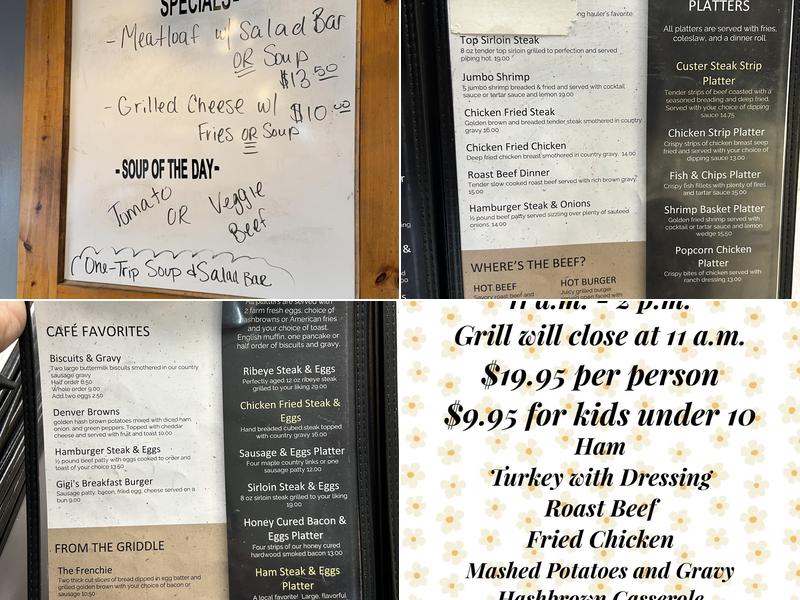 SPECIALS-
- Meatloaf w/ Salad Bar
OR Soup
$13.50
- Grilled Cheese w/ $10.00
Fries OR Soup
-SOUP OF THE DAY-
Tomato OR Veggie
Beef
One-Trip Soup & Salad Bar
ong hauler's favorite
Top Sirloin Steak
8 oz tender top sirloin grilled to perfection and served
piping hot. 19.00
Jumbo Shrimp
5 jumbo shrimp breaded & fried and served with cocktail
sauce or tartar sauce and lemon 19.00
Chicken Fried Steak
Golden brown and breaded tender steak smothered in country
gravy 16.00
Chicken Fried Chicken
Deep fried chicken breast smothered in country gravy. 14.00
Roast Beef Dinner
Tender slow cooked roast beef served with rich brown gravy.
15.00
Hamburger Steak & Onions
½ pound beef patty served sizzling over plenty of sauteed
onions. 14.00
WHERE'S THE BEEF?
HOT BEEF
Savory roast beef and
HOT BURGER
Juicy grilled burger
open faced with
PLATTERS
All platters are served with fries,
coleslaw, and a dinner roll.
Custer Steak Strip
Platter
Tender strips of beef coated with a
seasoned breading and deep fried.
Served with your choice of dipping
sauce 14.75
Chicken Strip Platter
Crispy strips of chicken breast deep
fried and served with your choice of
dipping sauce 13.00
Fish & Chips Platter
Crispy fish fillets with plenty of fries
and tartar sauce 15.00
Shrimp Basket Platter
Golden fried shrimp served with
cocktail or tartar sauce and lemon
wedge 15.50
Popcorn Chicken
Platter
Crispy bites of chicken served with
ranch dressing 13.00
CAFÉ FAVORITES
Biscuits & Gravy
Two large buttermilk biscuits smothered in our country
sausage gravy
Half order 6.50
Whole order 9.00
Add two eggs 2.50
Denver Browns
golden hash brown potatoes mixed with diced ham,
onion, and green peppers. Topped with cheddar
cheese and served with fruit and toast 10.00
Hamburger Steak & Eggs
½ pound beef patty with eggs cooked to order and
toast of your choice 13.50
Gigi's Breakfast Burger
Sausage patty, bacon, fried egg, cheese served on a
bun 9.00
FROM THE GRIDDLE
The Frenchie
Two thick cut slices of bread dipped in egg batter and
grilled golden brown with your choice of bacon or
sausage 10.50
All platters are served with
2 farm fresh eggs, choice of
hashbrowns or American fries
and your choice of toast,
English muffin, one pancake or
half order of biscuits and gravy.
Ribeye Steak & Eggs
Perfectly aged 12 oz ribeye steak
grilled to your liking 29.00
Chicken Fried Steak &
Eggs
Hand breaded cubed steak topped
with country gravy 16.00
Sausage & Eggs Platter
Four maple country links or one
sausage patty 12.00
Sirloin Steak & Eggs
8 oz sirloin steak grilled to your liking
19.00
Honey Cured Bacon &
Eggs Platter
Four strips of our honey cured
hardwood smoked bacon 13.00
Ham Steak & Eggs
Platter
A local favorite! Large, flavorful
11 a.m. - 2 p.m.
Grill will close at 11 a.m.
$19.95 per person
$9.95 for kids under 10
Ham
Turkey with Dressing
Roast Beef
Fried Chicken
Mashed Potatoes and Gravy
Hashbrown Casserole